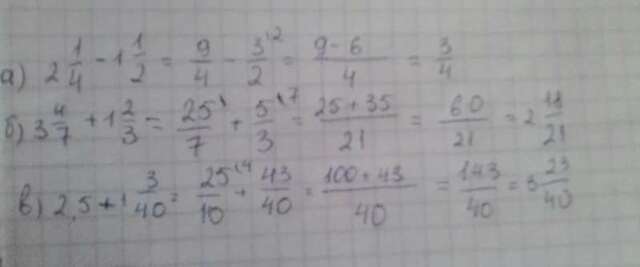 а) 2 1/4 - 1 1/2 = 9/4 - 3/2 ^(2 = (9-6)/4 = 3/4
б) 3 4/7 + 1 2/3 = 25/7 ^(1 + 5/3 ^(7 = (25+35)/21 = 60/21 = 2 11/21
в) 2,5 + 1 3/40 = 25/10 ^(4 + 43/40 = (100+43)/40 = 143/40 = 3 23/40